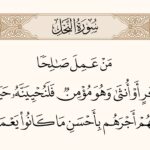 سُورَةُ النَّحْلِ
مَنْ عَمِلَ صَـٰلِحًا
أَوْ أُنثَىٰ وَهُوَ مُؤْمِنٌ فَلَنُحْيِيَنَّهُۥ
أَجْرَهُم بِأَحْسَنِ مَا كَانُوا۟